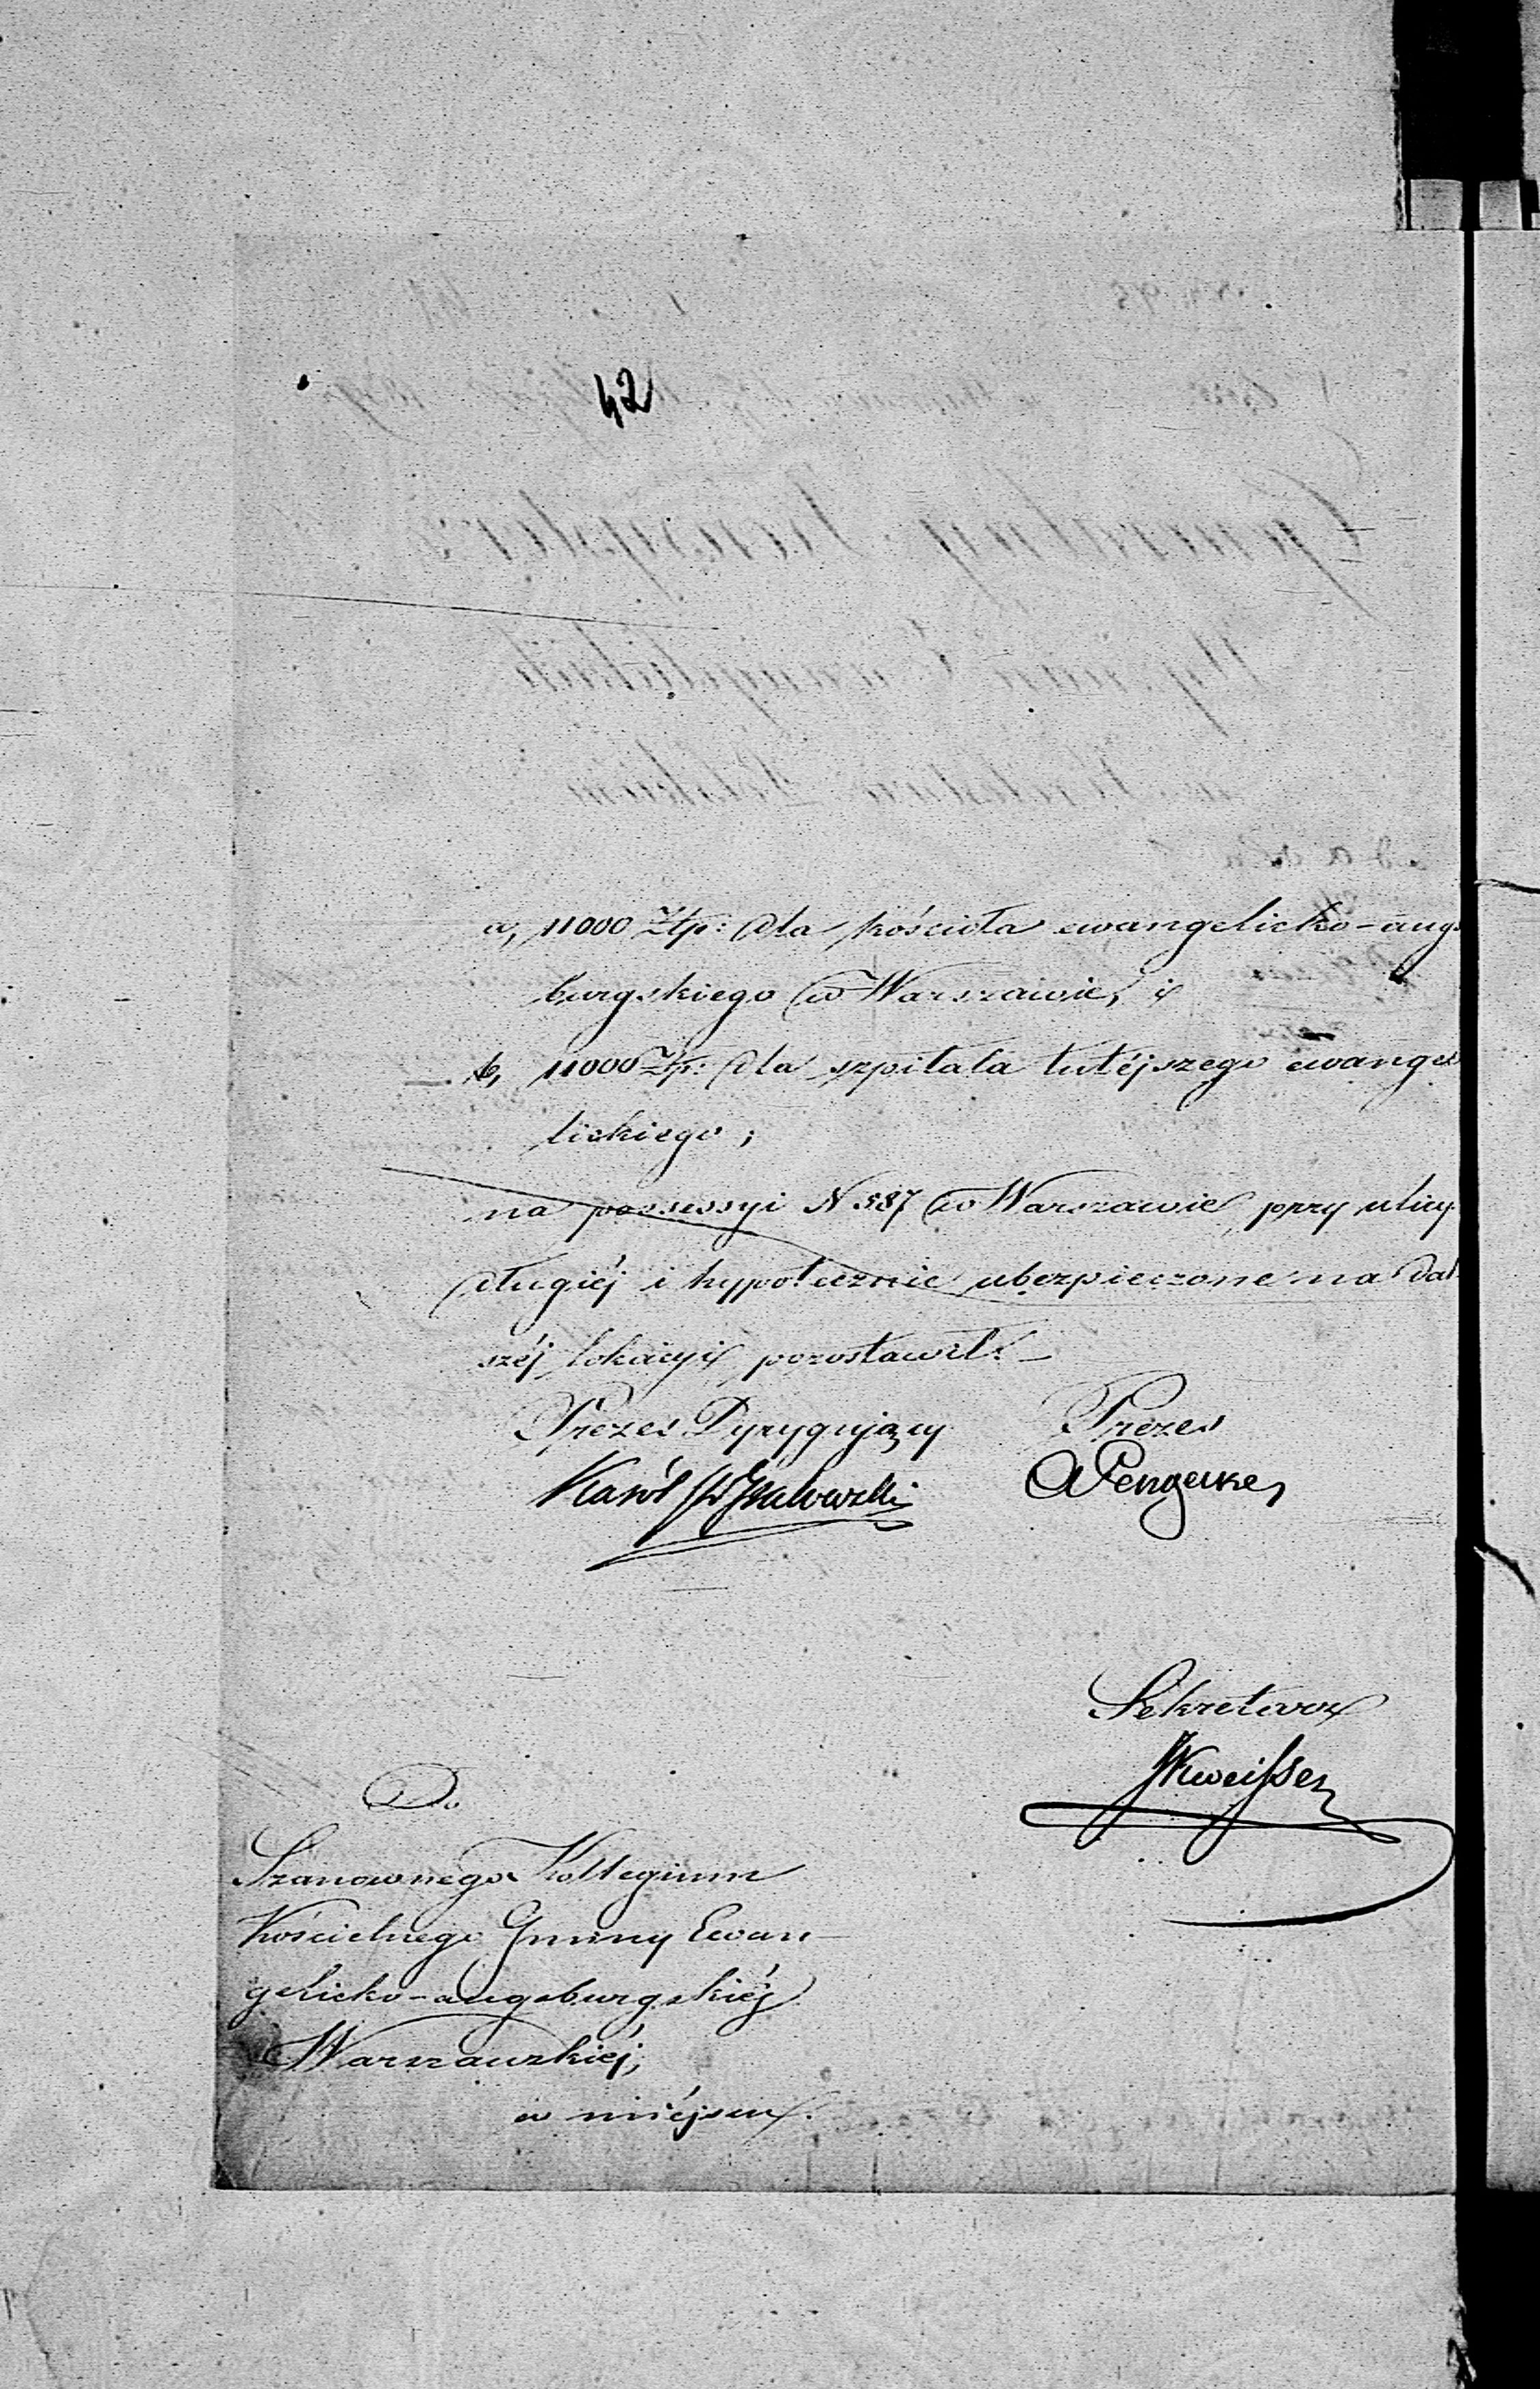 42
a, 11000 Złp: dla kościoła ewangelicko-augs
burgskiego w Warszawie, i
b, 11000 Złp: dla szpitala tutéjszego ewange
lickiego;
na possessyi N 587 w Warszawie przy ulicy
długiéj i hypotecznie ubezpieczone na dal
széj lokacyi pozostawił.
Prezes Dyrygujący Prezes
Karól
Sekretarz
Do
Szanownego Kollegium
Kościelnego Gminy Ewan-
gelicko-augsburgskiéj
Warszawskiéj,
w miéjscu.